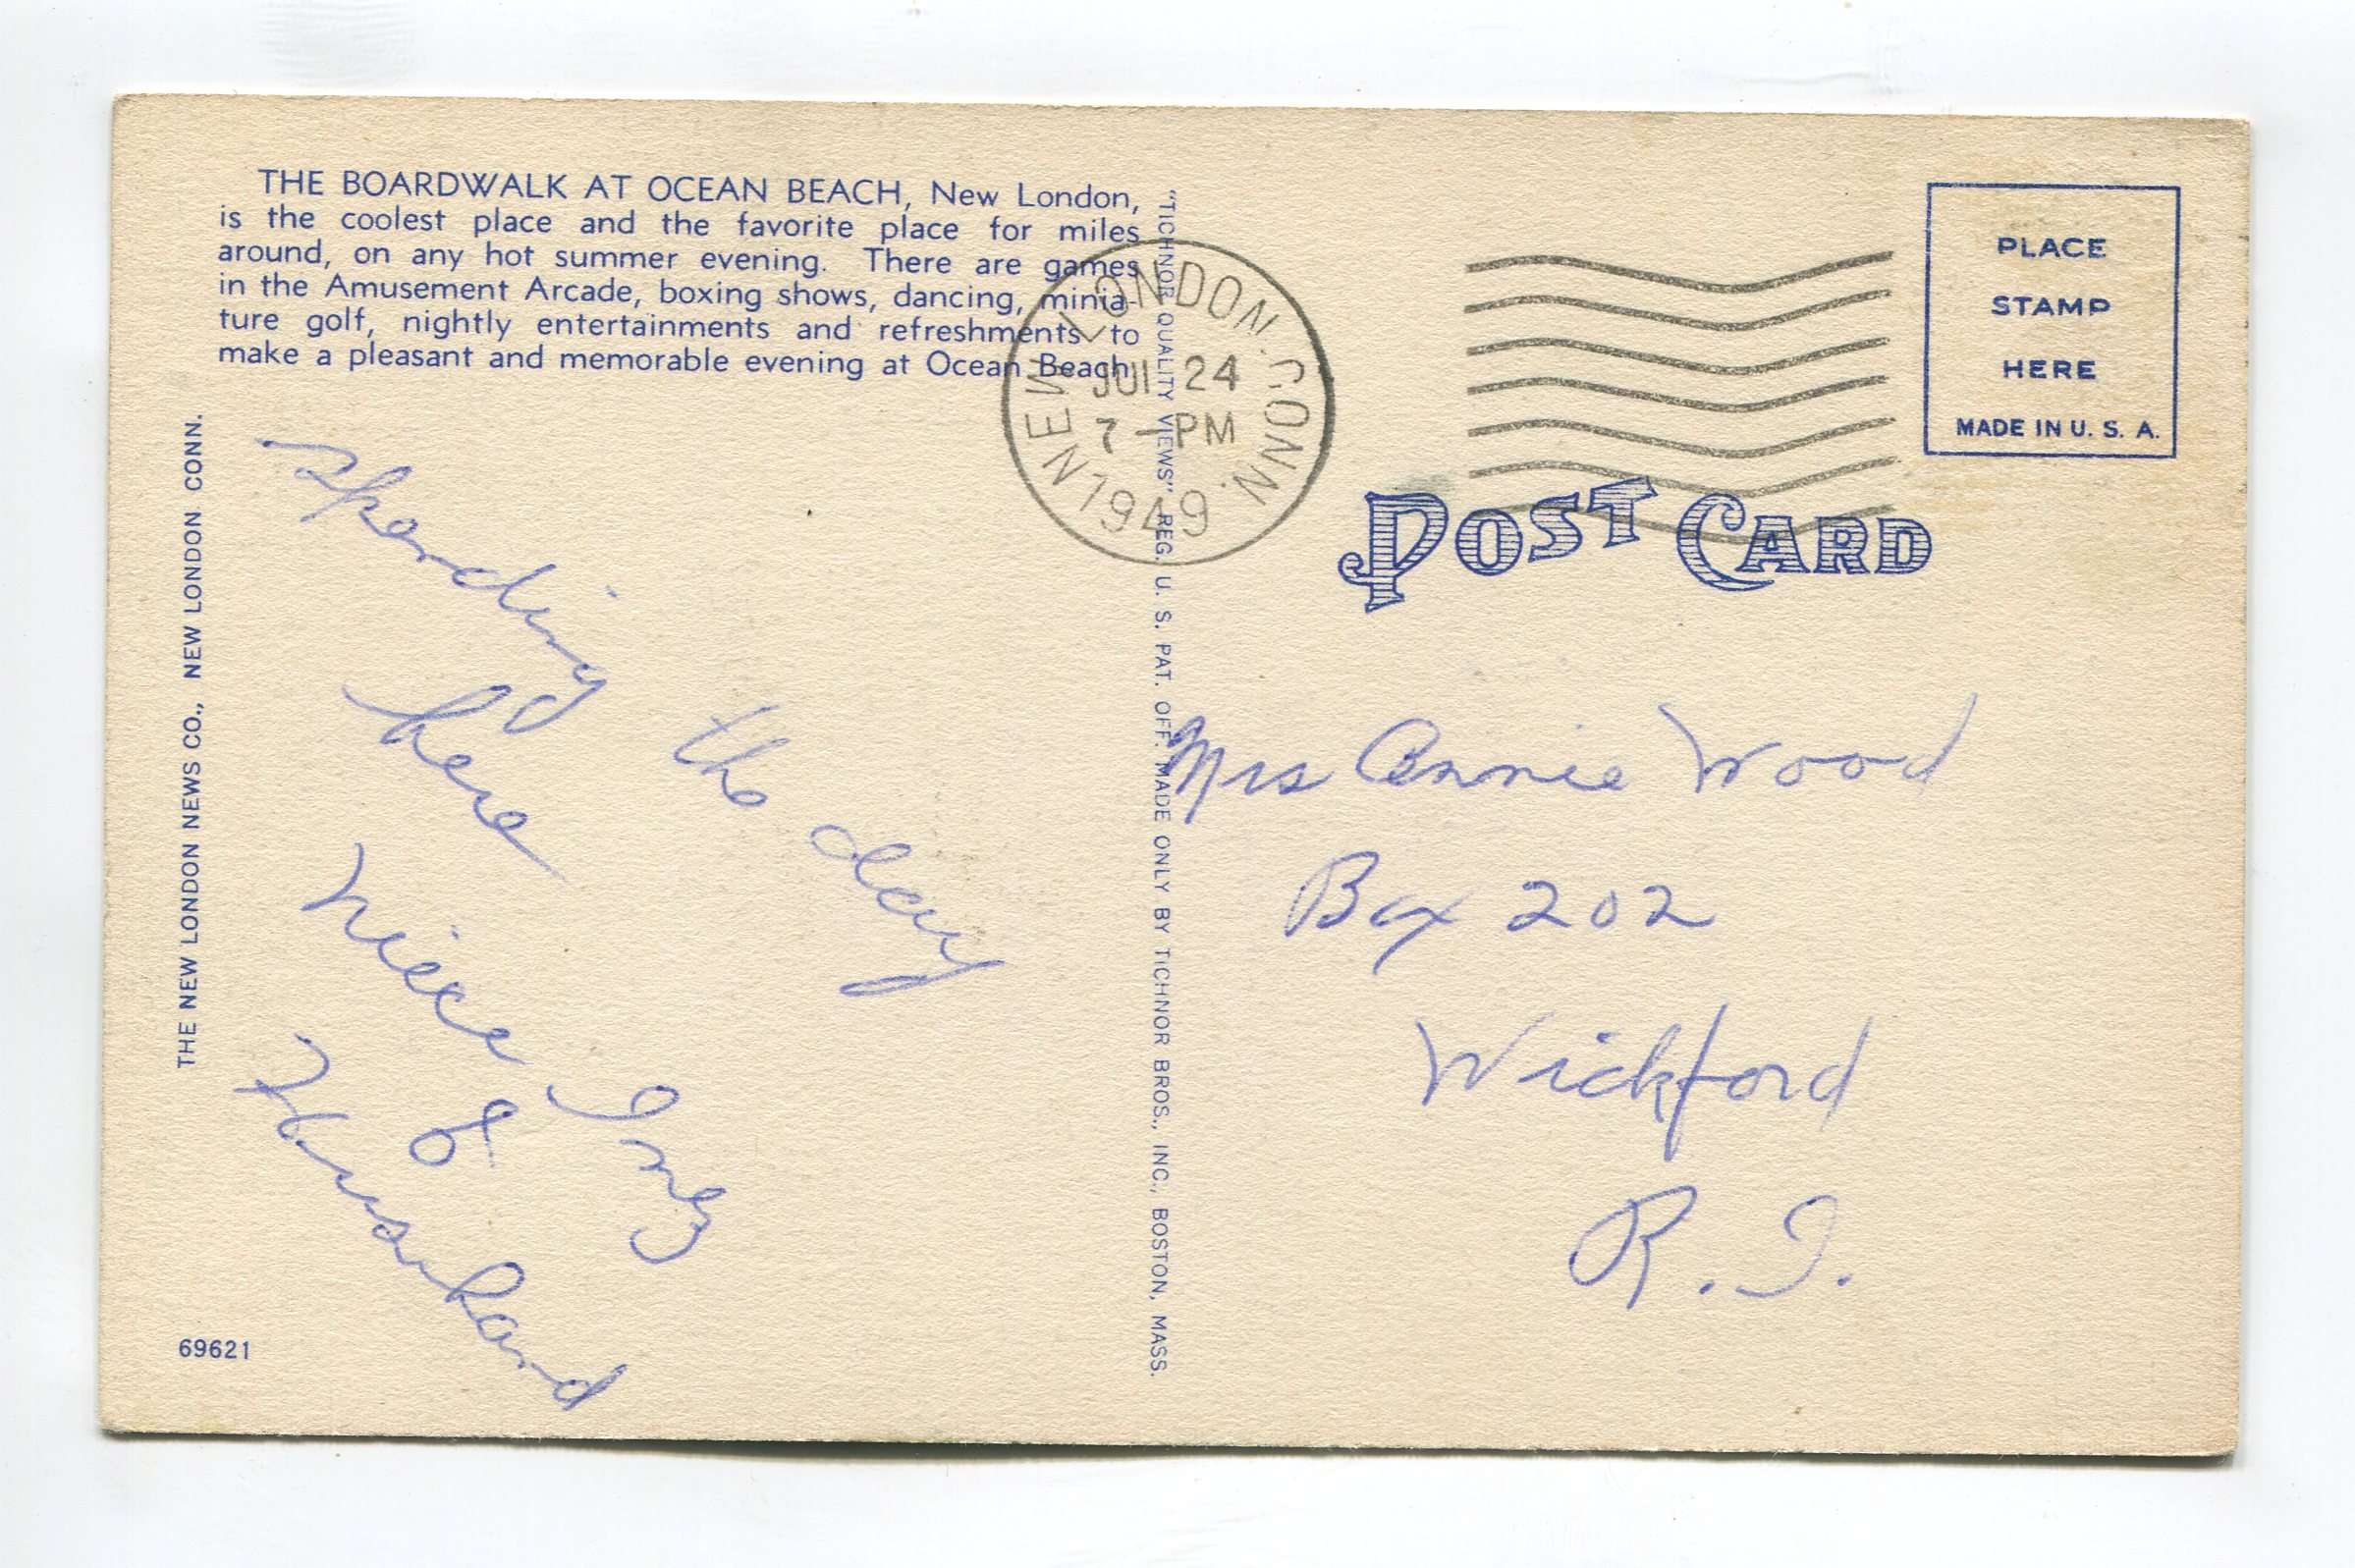 THE BOARDWALK AT OCEAN BEACH, New London,
is the coolest place and the favorite place for miles
around, on any hot summer evening. There are games
in the Amusement Arcade, boxing shows, dancing, minia-
ture golf, nightly entertainments and refreshments to
make a pleasant and memorable evening at Ocean Beach.
THE NEW LONDON NEWS CO., NEW LONDON CONN.
Spending the day
here
niece Inez
&
Howard
69621
"TICHNOR QUALITY VIEWS" REG. U. S. PAT. OFF. MADE ONLY BY TICHNOR BROS., INC., BOSTON, MASS.
NEW LONDON, CONN.
JUL 24
7 - PM
1949
PLACE
STAMP
HERE
MADE IN U. S. A.
POST CARD
Mrs Annie Wood
Box 202
Wickford
R. I.